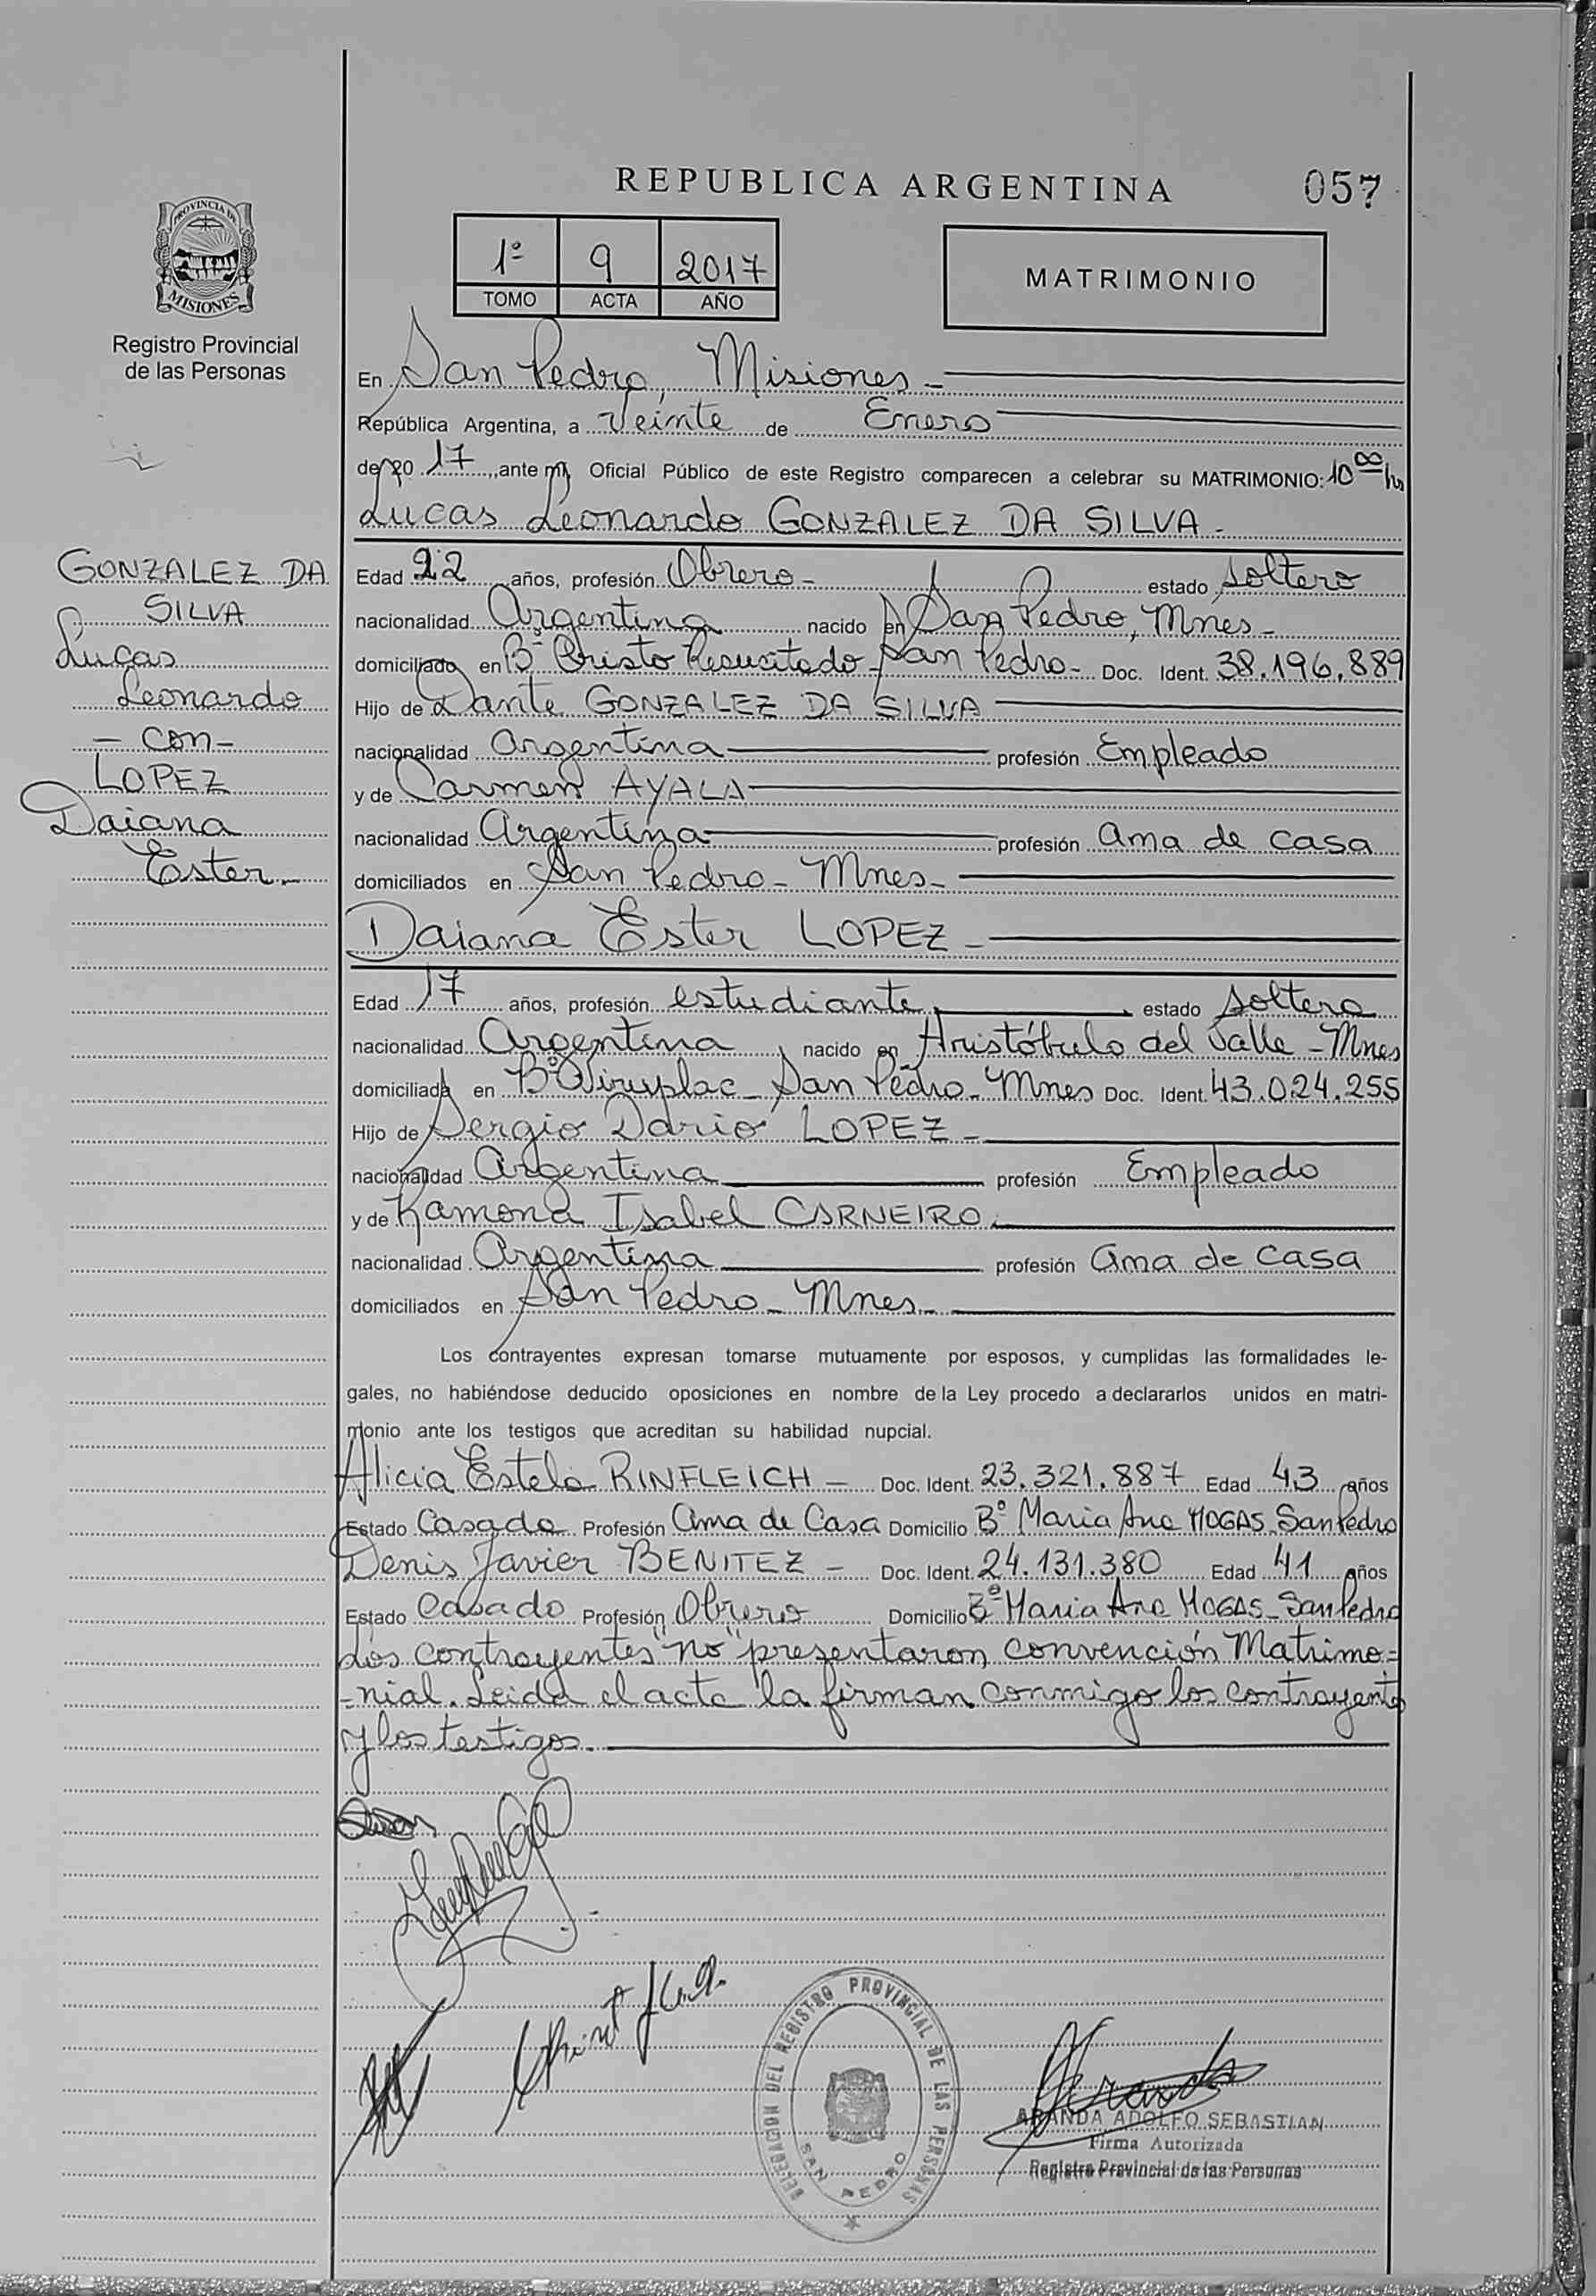 REPUBLICA ARGENTINA
057
1º 9 2017
TOMO ACTA AÑO
MATRIMONIO
PROVINCIA DE
MISIONES
Registro Provincial
de las Personas
GONZALEZ DA
SILVA
Lucas
Leonardo
- con -
LOPEZ
Daiana
Ester.-
En San Pedro, Misiones -
República Argentina, a Veinte de Enero
de 20 17, ante mí, Oficial Público de este Registro comparecen a celebrar su MATRIMONIO: 10 00 hs
Lucas Leonardo GONZALEZ DA SILVA -
Edad 22 años, profesión Obrero - estado soltero
nacionalidad Argentina nacido en San Pedro, Mnes -
domiciliado en Bº Cristo Resucitado San Pedro - Doc. Ident. 38.196.889
Hijo de Dante GONZALEZ DA SILVA
nacionalidad Argentina profesión Empleado
y de Carmen AYALA
nacionalidad Argentina profesión ama de casa
domiciliados en San Pedro - Mnes -
Daiana Ester LOPEZ -
Edad 17 años, profesión estudiante estado soltera
nacionalidad Argentina nacido en Aristóbulo del Valle - Mnes
domiciliada en Bº San Pedro - Mnes Doc. Ident. 43.024.255
Hijo de Sergio Dario LOPEZ -
nacionalidad Argentina profesión Empleado
y de Ramona Isabel CARNEIRO
nacionalidad Argentina profesión ama de casa
domiciliados en San Pedro - Mnes -
Los contrayentes expresan tomarse mutuamente por esposos, y cumplidas las formalidades le-
gales, no habiéndose deducido oposiciones en nombre de la Ley procedo a declararlos unidos en matri-
monio ante los testigos que acreditan su habilidad nupcial.
Alicia Estela RINFLEICH - Doc. Ident. 23.321.887 Edad 43 años
Estado Casada Profesión ama de Casa Domicilio Bº Maria Ana MOGAS - San Pedro
Denis Javier BENITEZ - Doc. Ident. 24.131.380 Edad 41 años
Estado Casado Profesión Obrero Domicilio Bº Maria Ana MOGAS - San Pedro
Los contrayentes "no" presentaron convención Matrimo=
-nial. Leida el acta la firman conmigo los contrayentes
y los testigos.
DELEGACION DEL REGISTRO PROVINCIAL DE LAS PERSONAS
SAN PEDRO
ARANDA ADOLFO SEBASTIAN
Firma Autorizada
Registro Provincial de las Personas